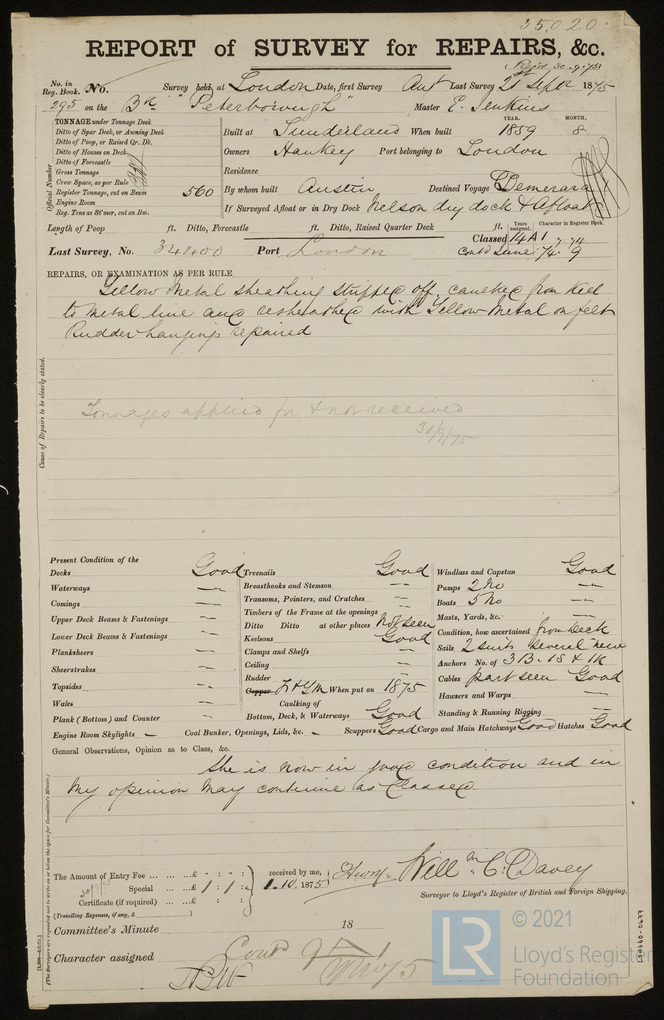 35,020
REPORT of SURVEY for REPAIRS, &c.
(Rec'd 30.9.75)
No. in Reg. Book. No. Survey held at London Date, first Survey Aut Last Survey 21st Sept 1875
295 on the Bk "Peterborough" Master E. Jenkins
TONNAGE under Tonnage Deck
Ditto of Spar Deck, or Awning Deck
Ditto of Poop, or Raised Qr. Dk.
Ditto of Houses on Deck
Ditto of Forecastle
Gross Tonnage
Crew Space, as per Rule
Register Tonnage, cut on Beam 560
Engine Room
Reg. Tons as St'mer, cut on Bm.
Official Number
YEAR. MONTH.
Built at Sunderland When built 1859 8
Owners Hankey Port belonging to London
Residence
By whom built Austin Destined Voyage Demerara
If Surveyed Afloat or in Dry Dock Nelson dry dock & Afloat
Length of Poop ft. Ditto, Forecastle ft. Ditto, Raised Quarter Deck ft.
Years assigned. Character in Register Book.
Classed 14 A1 7.74
Last Survey, No. 34200 Port London Contd Lune 74. 9
REPAIRS, OR EXAMINATION AS PER RULE
Yellow Metal sheathing stripped off, caulked from keel
to metal line and resheathed with Yellow Metal on felt
Rudder hangings repaired
Cause of Repairs to be clearly stated.
Tonnages applied for & not received
30/9/75
Present Condition of the
Decks Good
Waterways —
Comings —
Upper Deck Beams & Fastenings —
Lower Deck Beams & Fastenings —
Planksheers —
Sheerstrakes —
Topsides —
Wales —
Plank (Bottom) and Counter —
Engine Room Skylights — Coal Bunker, Openings, Lids, &c. — Scuppers Good Cargo and Main Hatchways Good Hatches Good
Treenails Good
Breasthooks and Stemson —
Transoms, Pointers, and Crutches —
Timbers of the Frame at the openings —
Ditto Ditto at other places Not seen
Keelsons Good
Clamps and Shelfs —
Ceiling —
Rudder —
Copper F & YM When put on 1875
Caulking of
Bottom, Deck, & Waterways Good
Windlass and Capstan Good
Pumps 2 No —
Boats 5 No —
Masts, Yards, &c. —
Condition, how ascertained from deck
Sails 2 suits several new
Anchors No. of 3 B. 1S & 1K
Cables part seen Good
Hawsers and Warps —
Standing & Running Rigging —
General Observations, Opinion as to Class, &c.
She is now in good condition and in
my opinion may continue as Classed
(The Surveyors are requested not to write on or below the space for Committee's Minute.)
The Amount of Entry Fee ... ... £ : :
Special ... ... £ 1 : 1 :
Certificate (if required) ... ... £ : :
(Travelling Expenses, if any, £ )
received by me,
1.10.1875
Willm. C. Davey
Surveyor to Lloyd's Register of British and Foreign Shipping.
Committee's Minute 18
Character assigned Contd
© 2021
LR
Lloyd's Register
Foundation